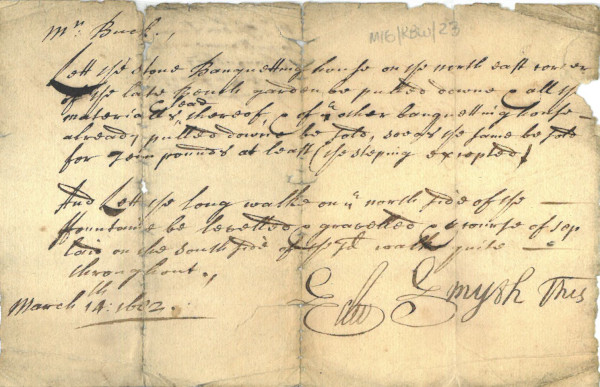 Mr. Buck,
M/6/RBW/23
Lett the stone Banquetting house on the north east corner
of the late french garden be pulled downe & all the
lead
materialls thereof, & of ye other banquetting house
already pulled downe be sold, soe as the same be sold
for Tenn pounds at least (the steping excepted)
And Lett the long walke on ye north side of the
fountaine be levelled & gravelled & a course of
laid on the south side of the sd walke quite
throughout.
March 14th: 1682. Edw Smyth Thus